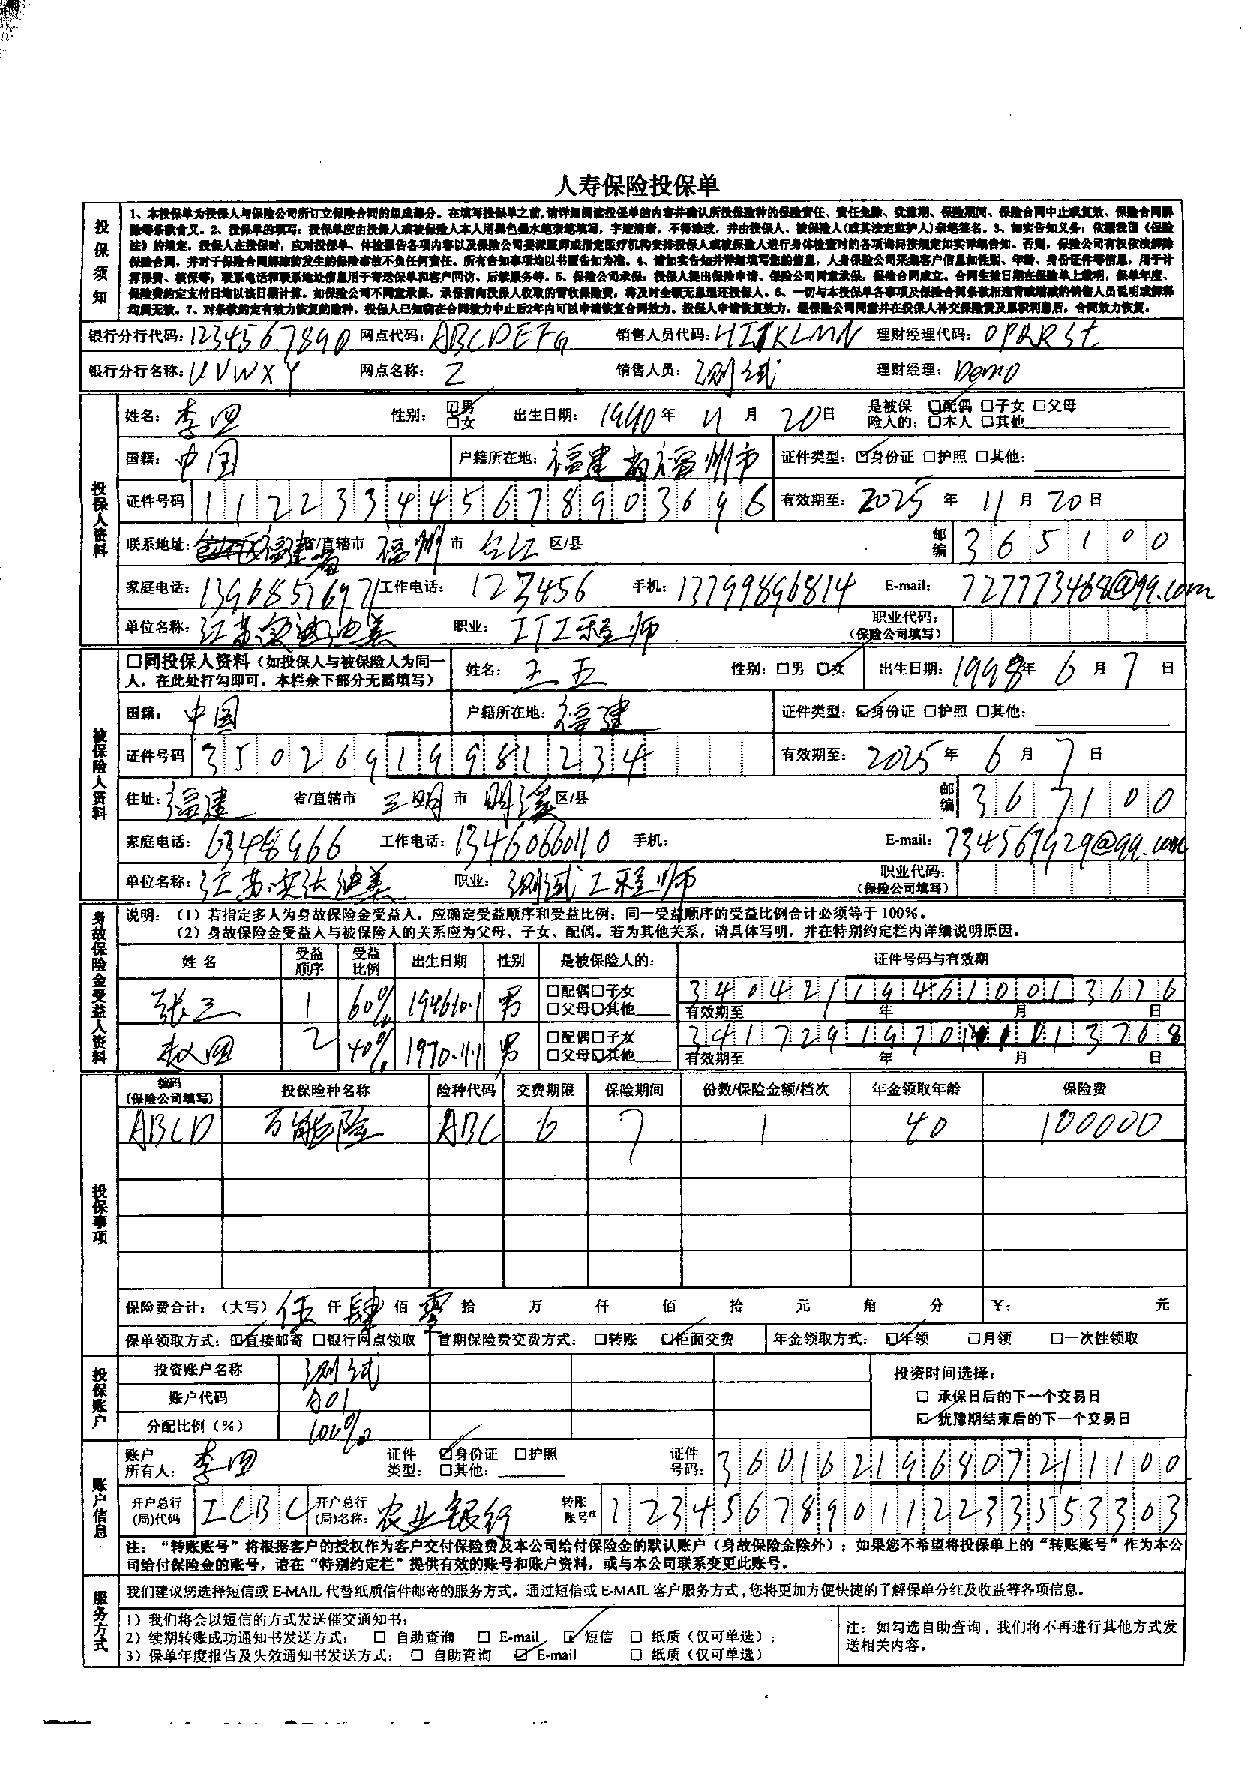 人寿保险投保单
投保须知
1、本投保单为投保人与保险公司所订立保险合同的组成部分。在填写投保单之前,请详细阅读投保单的内容并确认所投保险种的保险责任、责任免除、犹豫期、保险期间、保险合同中止或复效、保险合同解
除等条款含义。2、投保单的填写:投保单应由投保人或被保险人本人用黑色墨水笔亲笔填写,字迹清晰,不得涂改,并由投保人、被保险人(或其法定监护人)亲笔签名。3、如实告知义务:依据我国《保险
法》的规定,投保人在投保时,应对投保单、体检报告各项内容以及保险公司要求医师或指定医疗机构安排投保人或被保险人进行身体检查时的各项询问按规定如实详细告知。否则,保险公司有权依法解除
保险合同,并对于保险合同解除前发生的保险事故不负任何责任。所有告知事项均以书面告知为准。4、请如实告知并详细填写您的信息,人身保险公司采集客户信息如性别、年龄、身份证件等信息,用于计
算保费、核保等,联系电话和联系地址信息用于寄送保单和客户回访、后续服务等。5、保险公司承保:投保人提出保险申请、保险公司同意承保,保险合同成立。合同生效日期在保险单上载明,保单年度、
保险费约定支付日均以该日期计算。如保险公司不同意承保,承保前向投保人收取的暂收保险费,将及时全额无息退还投保人。6、一切与本投保单各事项及保险合同条款相违背或增减的销售人员说明或解释
均属无效。7、对条款约定有效力恢复的险种,投保人已知晓在合同效力中止后2年内可以申请恢复合同效力。投保人申请恢复效力,经保险公司同意并在投保人补交保险费及累积利息后,合同效力恢复。
银行分行代码:1234567890 网点代码:ABCDEFG 销售人员代码:HIJKLMN 理财经理代码:OPQRST
银行分行名称:UVWXY 网点名称:Z 销售人员:测试 理财经理:Demo
投保人资料
姓名:李四 性别:☑男 □女 出生日期:1990年11月20日 是被保险人的:☑配偶 □子女 □父母 □本人 □其他
国籍:中国 户籍所在地:福建省福州市 证件类型:☑身份证 □护照 □其他:
证件号码 112233445678903696 有效期至:2025年11月20日
联系地址:福建省 省/直辖市 福州 市 台江 区/县 邮编 365100
家庭电话:13968576971 工作电话:123456 手机:13799896814 E-mail:727773468@qq.com
单位名称:江苏实达迪美 职业:IT工程师 职业代码:(保险公司填写)
被保险人资料
□同投保人资料(如投保人与被保险人为同一人,在此处打勾即可,本栏余下部分无需填写) 姓名:王五 性别:□男 ☑女 出生日期:1998年6月7日
国籍:中国 户籍所在地:福建 证件类型:☑身份证 □护照 □其他:
证件号码 35026919981234 有效期至:2025年6月7日
住址:福建 省/直辖市 三明 市 明溪 区/县 邮编 367100
家庭电话:63498966 工作电话:13460660110 手机: E-mail:734567929@qq.com
单位名称:江苏实达迪美 职业:测试工程师 职业代码:(保险公司填写)
身故保险金受益人资料
说明:(1)若指定多人为身故保险金受益人,应确定受益顺序和受益比例;同一受益顺序的受益比例合计必须等于100%。
(2)身故保险金受益人与被保险人的关系应为父母、子女、配偶。若为其他关系,请具体写明,并在特别约定栏内详细说明原因。
姓 名 受益顺序 受益比例 出生日期 性别 是被保险人的: 证件号码与有效期
张三 1 60% 1946.10.1 男 □配偶□子女 □父母☑其他 340421194610013676 有效期至 年 月 日
赵四 2 40% 1970.11.11 男 □配偶□子女 □父母☑其他 有效期至 年 月 日
投保事项
编码(保险公司填写) 投保险种名称 险种代码 交费期限 保险期间 份数/保险金额/档次 年金领取年龄 保险费
ABCD 万能险 ABC 6 7 1 40 100000
保险费合计:(大写)伍 仟 肆 佰 零 拾 万 仟 佰 拾 元 角 分 ¥: 元
保单领取方式:☑直接邮寄 □银行网点领取 首期保险费交费方式:□转账 ☑柜面交费 年金领取方式:☑年领 □月领 □一次性领取
投保账户
投资账户名称 测试 投资时间选择:
账户代码 A01 □ 承保日后的下一个交易日
分配比例(%) 100% ☑ 犹豫期结束后的下一个交易日
账户信息
账户所有人:李四 证件类型:☑身份证 □护照 □其他: 证件号码:360162196807211100
开户总行(局)代码 ICBC 开户总行(局)名称:农业银行 转账账号 1234567890112233553303
注:“转账账号”将根据客户的授权作为客户交付保险费及本公司给付保险金的默认账户(身故保险金除外);如果您不希望将投保单上的“转账账号”作为本公
司给付保险金的账号,请在“特别约定栏”提供有效的账号和账户资料,或与本公司联系变更此账号。
服务方式
我们建议您选择短信或 E-MAIL 代替纸质信件邮寄的服务方式。通过短信或 E-MAIL 客户服务方式,您将更加方便快捷的了解保单分红及收益等各项信息。
1)我们将会以短信的方式发送催交通知书;
2)续期转账成功通知书发送方式: □ 自助查询 □ E-mail ☑ 短信 □ 纸质(仅可单选);
3)保单年度报告及失效通知书发送方式:□ 自助查询 ☑ E-mail □ 纸质(仅可单选)
注:如勾选自助查询,我们将不再进行其他方式发
送相关内容。